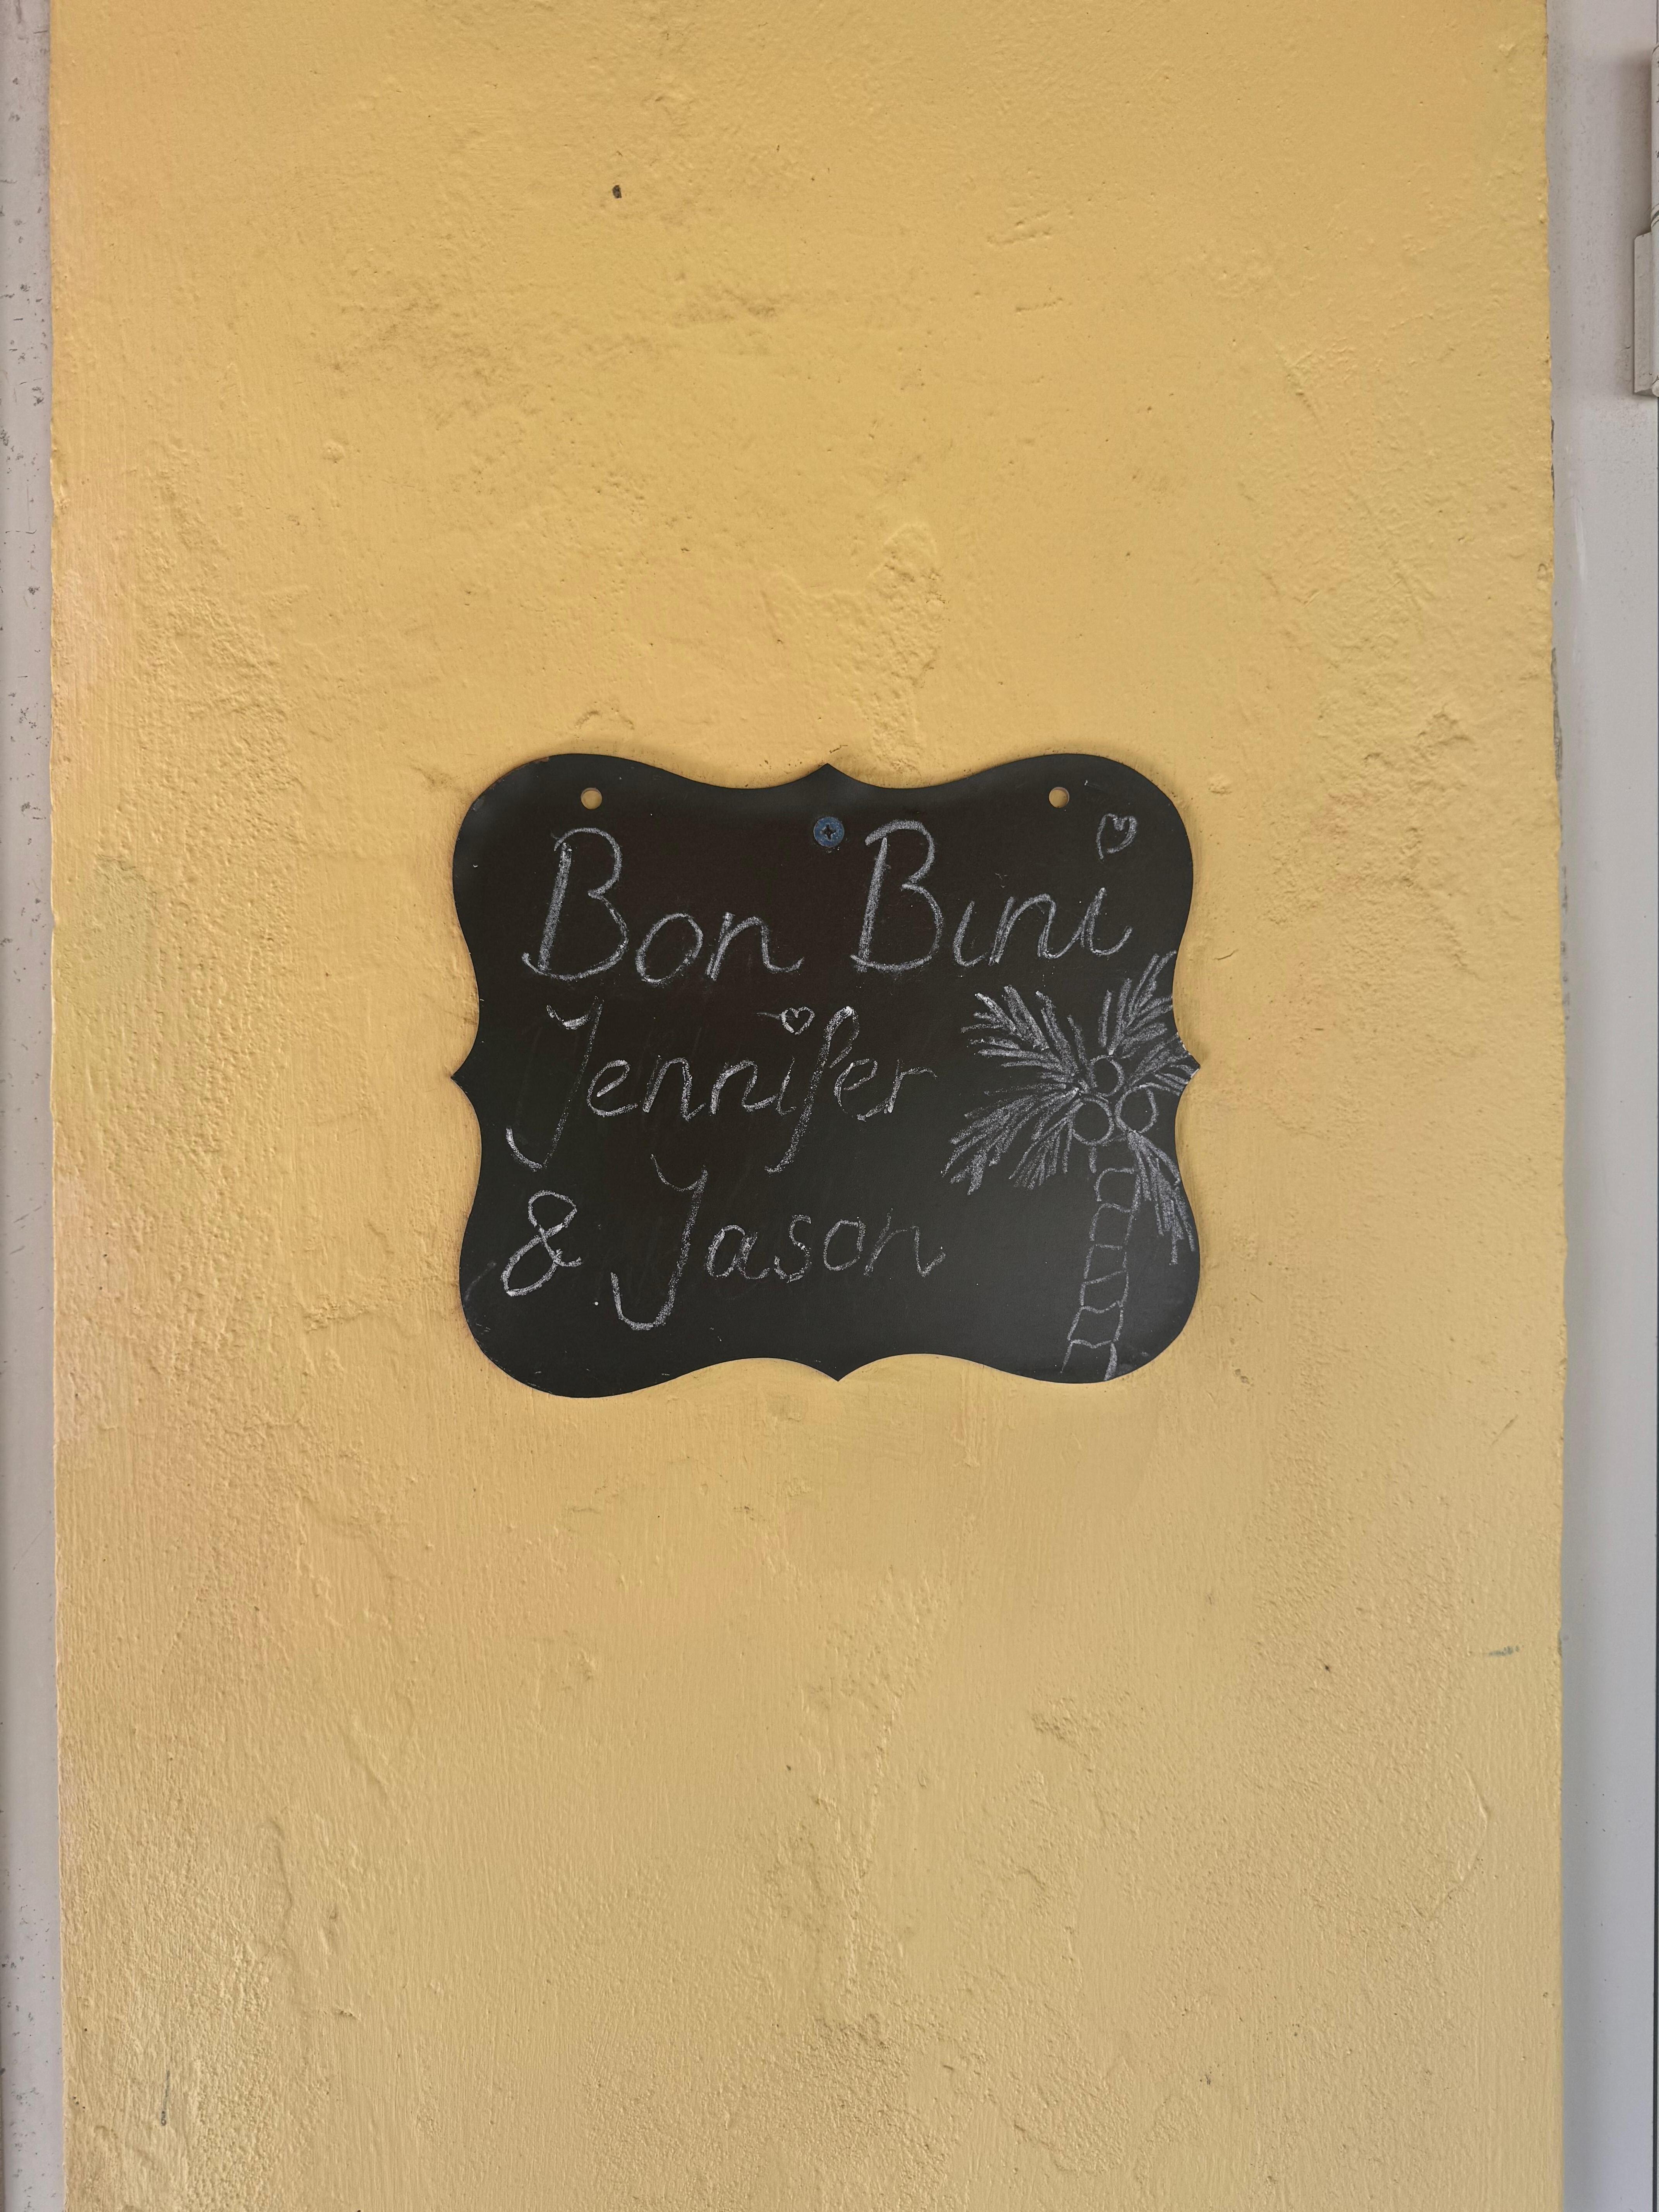 Bon Bini
Jennifer
& Jason